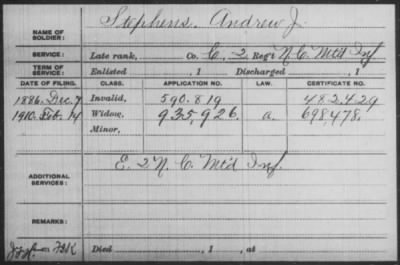 NAME OF SOLDIER: Stephens, Andrew J.
SERVICE: Late rank, Co. C, 2 Reg't N.C. Mt'd Inf
TERM OF SERVICE: Enlisted , 1 Discharged , 1
DATE OF FILING. CLASS. APPLICATION NO. LAW. CERTIFICATE NO.
1886. Dec. 7 Invalid, 590.819 482.429
1910. Feb. 14 Widow, 935,926. a. 698,478,
Minor,
ADDITIONAL SERVICES: E. 2 N.C. Mt'd Inf.
REMARKS:
Died , 1 , at